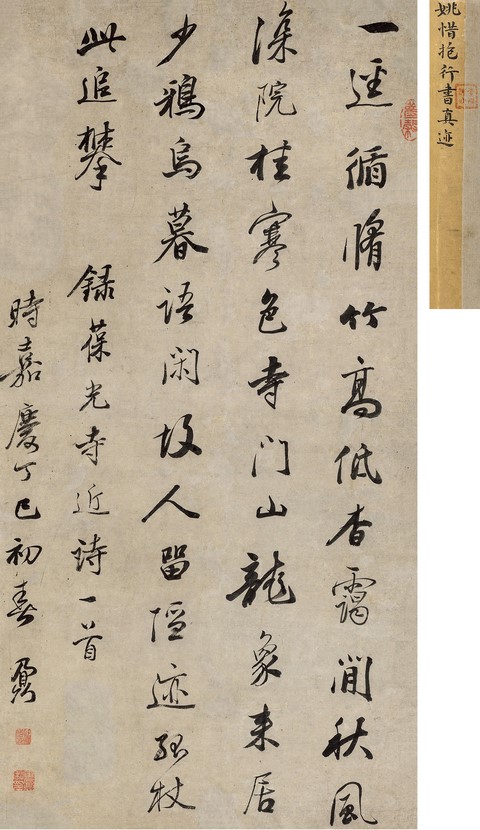 姚惜抱行書真迹
一逕循脩竹高低杳靄間秋風
深院桂寒色寺門山龍象来居
少鴉烏暮語閑故人留隱迹杖
此追攀 録葆光寺近詩一首
時嘉慶丁巳初春 鼐